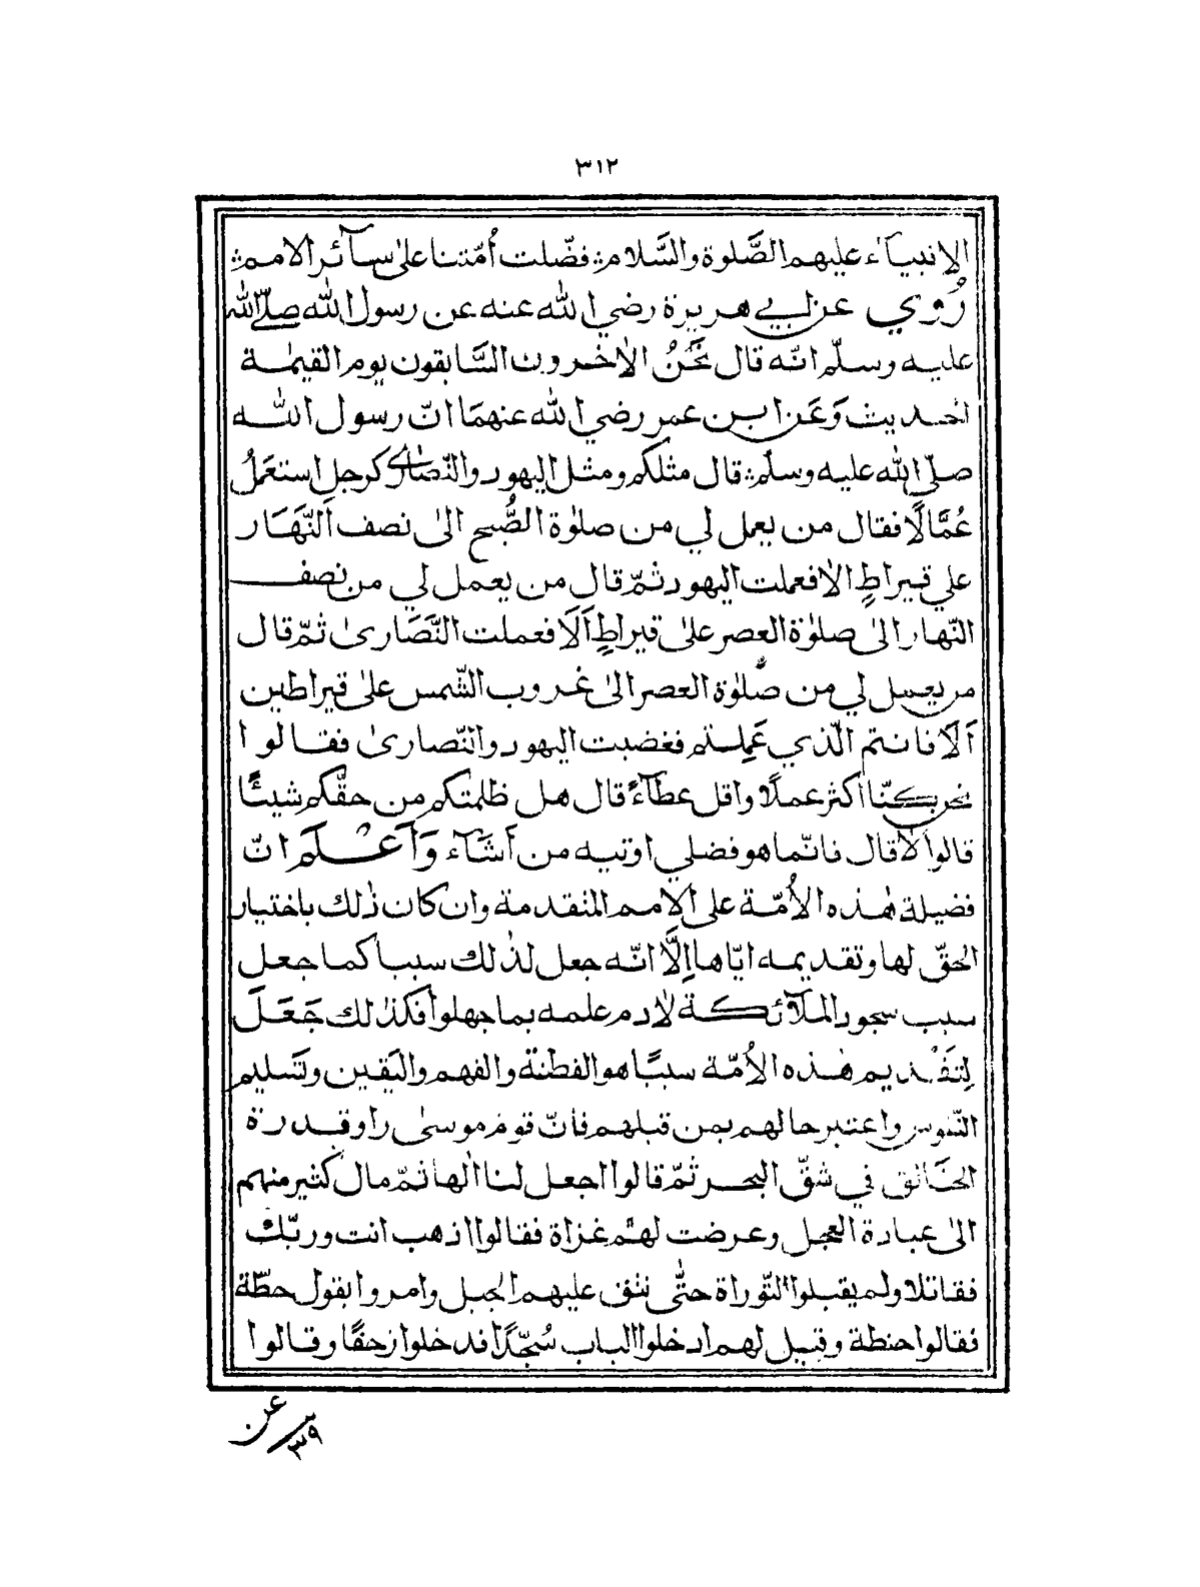 ٣١٢
الانبيآء عليهم الصَّلوة والسَّلام ؞ فضّلت اُمّتنا على سآئر الامم ؞
رُوي عن ابي هريرة رضي الله عنه عن رسول الله صلّى الله
عليه وسلّم انّه قال نَحْنُ الاٰخرون السَّابقون يوم القيٰمة
الحديث وَعَن ابن عمر رضي الله عنهمَا انّ رسول الله
صلّى الله عليه وسلم ؞ قال مثلكم ومثل اليهود والنّصارٰى كرجل استعمَلُ
عُمَّالًا فقال من يعمل لي من صلوٰة الصُّبح الىٰ نصف النَّهَار
على قيراطٍ الا فعملت اليهود ثمّ قال من يعمل لي من نصف
النّهار الىٰ صلوٰة العصر علىٰ قيراطٍ اَلَا فعملت النَّصَارىٰ ثمّ قال
من يعمل لي من صلوٰة العصر الىٰ غروب الشّمس علىٰ قيراطين
اَلَا فانتم الّذي عَمِلتم فغضبت اليهود والنّصارىٰ فقالوا
نحن كنّا اكثر عملًا واقل عطآءً قال هل ظلمتكم من حقّكم شيئًا
قالوا لا قال فانّما هو فضلي اوتيه من اَشَآء وَاَعْلَم انّ
فضيلة هٰذه الاُمّة على الامم المتقدمة وان كان ذٰلك باختيار
الحقّ لها وتقديمه ايّاها اِلَّا انّه جعل لذٰلك سببا كما جعل
سبب سجود الملآئكة لاٰدم علمه بما جهلوا فكذٰلك جَعَلَ
لِتَقْديم هٰذه الاُمّة سببًا هو الفطنة والفهم واليَقين وتَسليم
النّفوس واعتبر حالهم بمن قبلهم فانّ قوم موسىٰ راوقدرة
الخَالق في شقّ البحر ثمّ قالوا اجعل لنا الٰها ثمّ مال كثير منهم
الىٰ عبادة العجل وعرضت لهم غزاة فقالوا اذهب انت وربّك
فقاتلا ولم يقبلوا التّوراة حتّٰى نتق عليهم الجبل وامروا بقول حطّة
فقالوا حنطة وقيل لهم ادخلوا الباب سُجّدًا فدخلوا زحفًا وقالوا
عن
٣٩